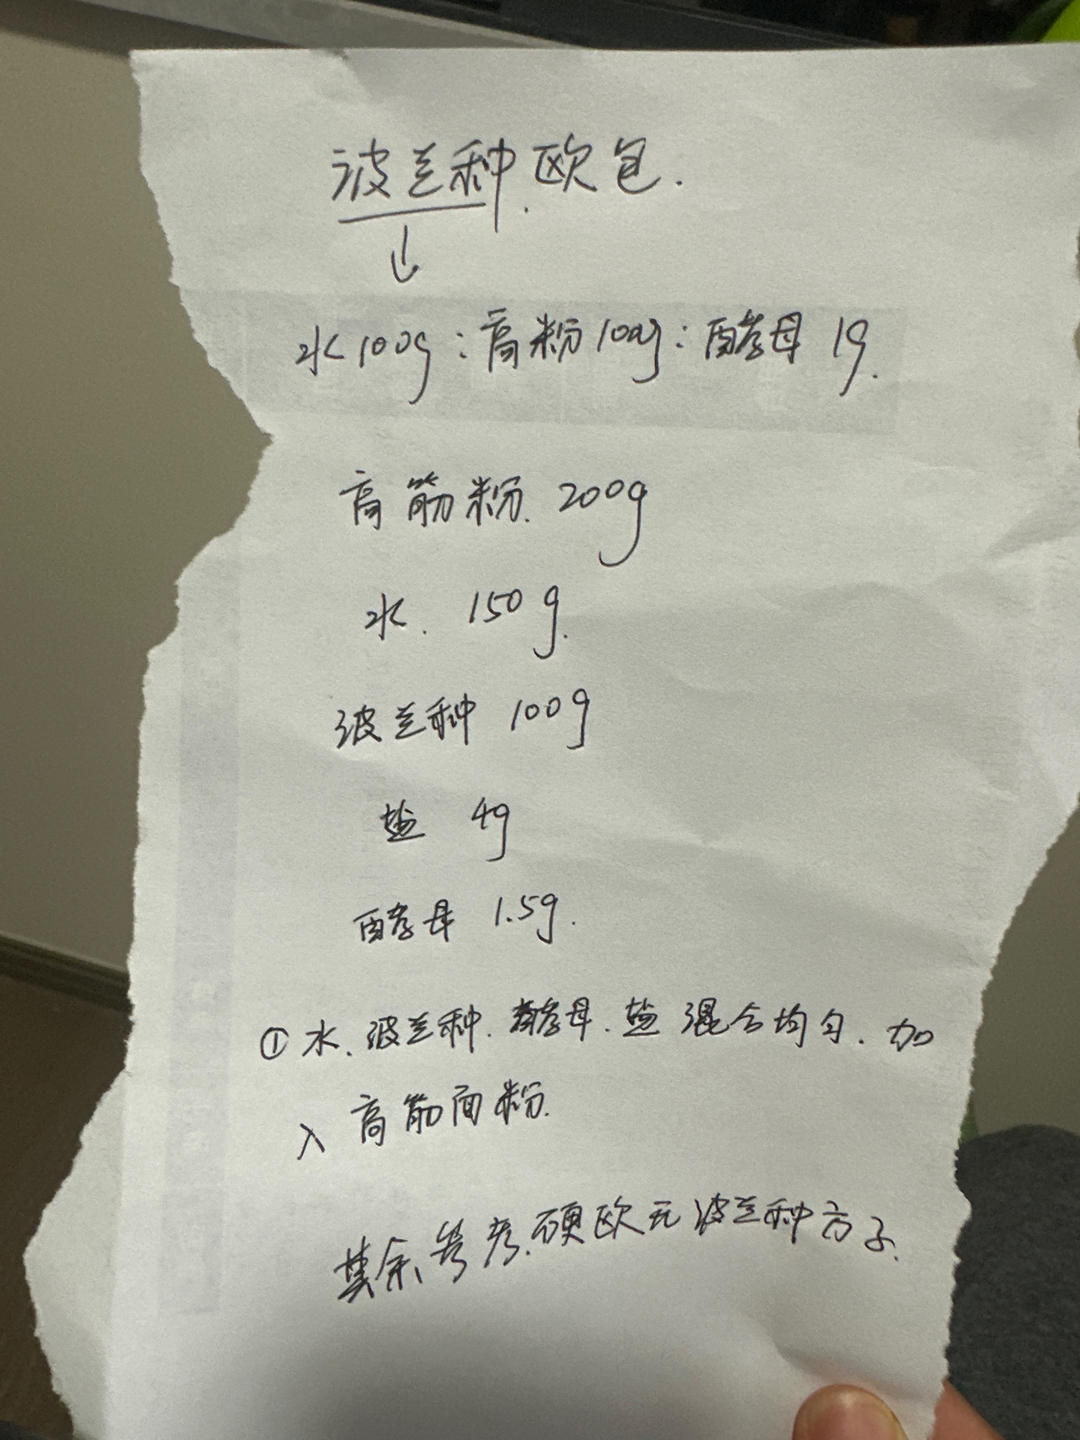 波兰种欧包.
水100g：高粉100g：酵母 1g.
高筋粉. 200g
水. 150g.
波兰种 100g
盐 4g
酵母 1.5g.
①水、波兰种、酵母、盐混合均匀. 加
入高筋面粉.
其余参考硬欧无波兰种方子.